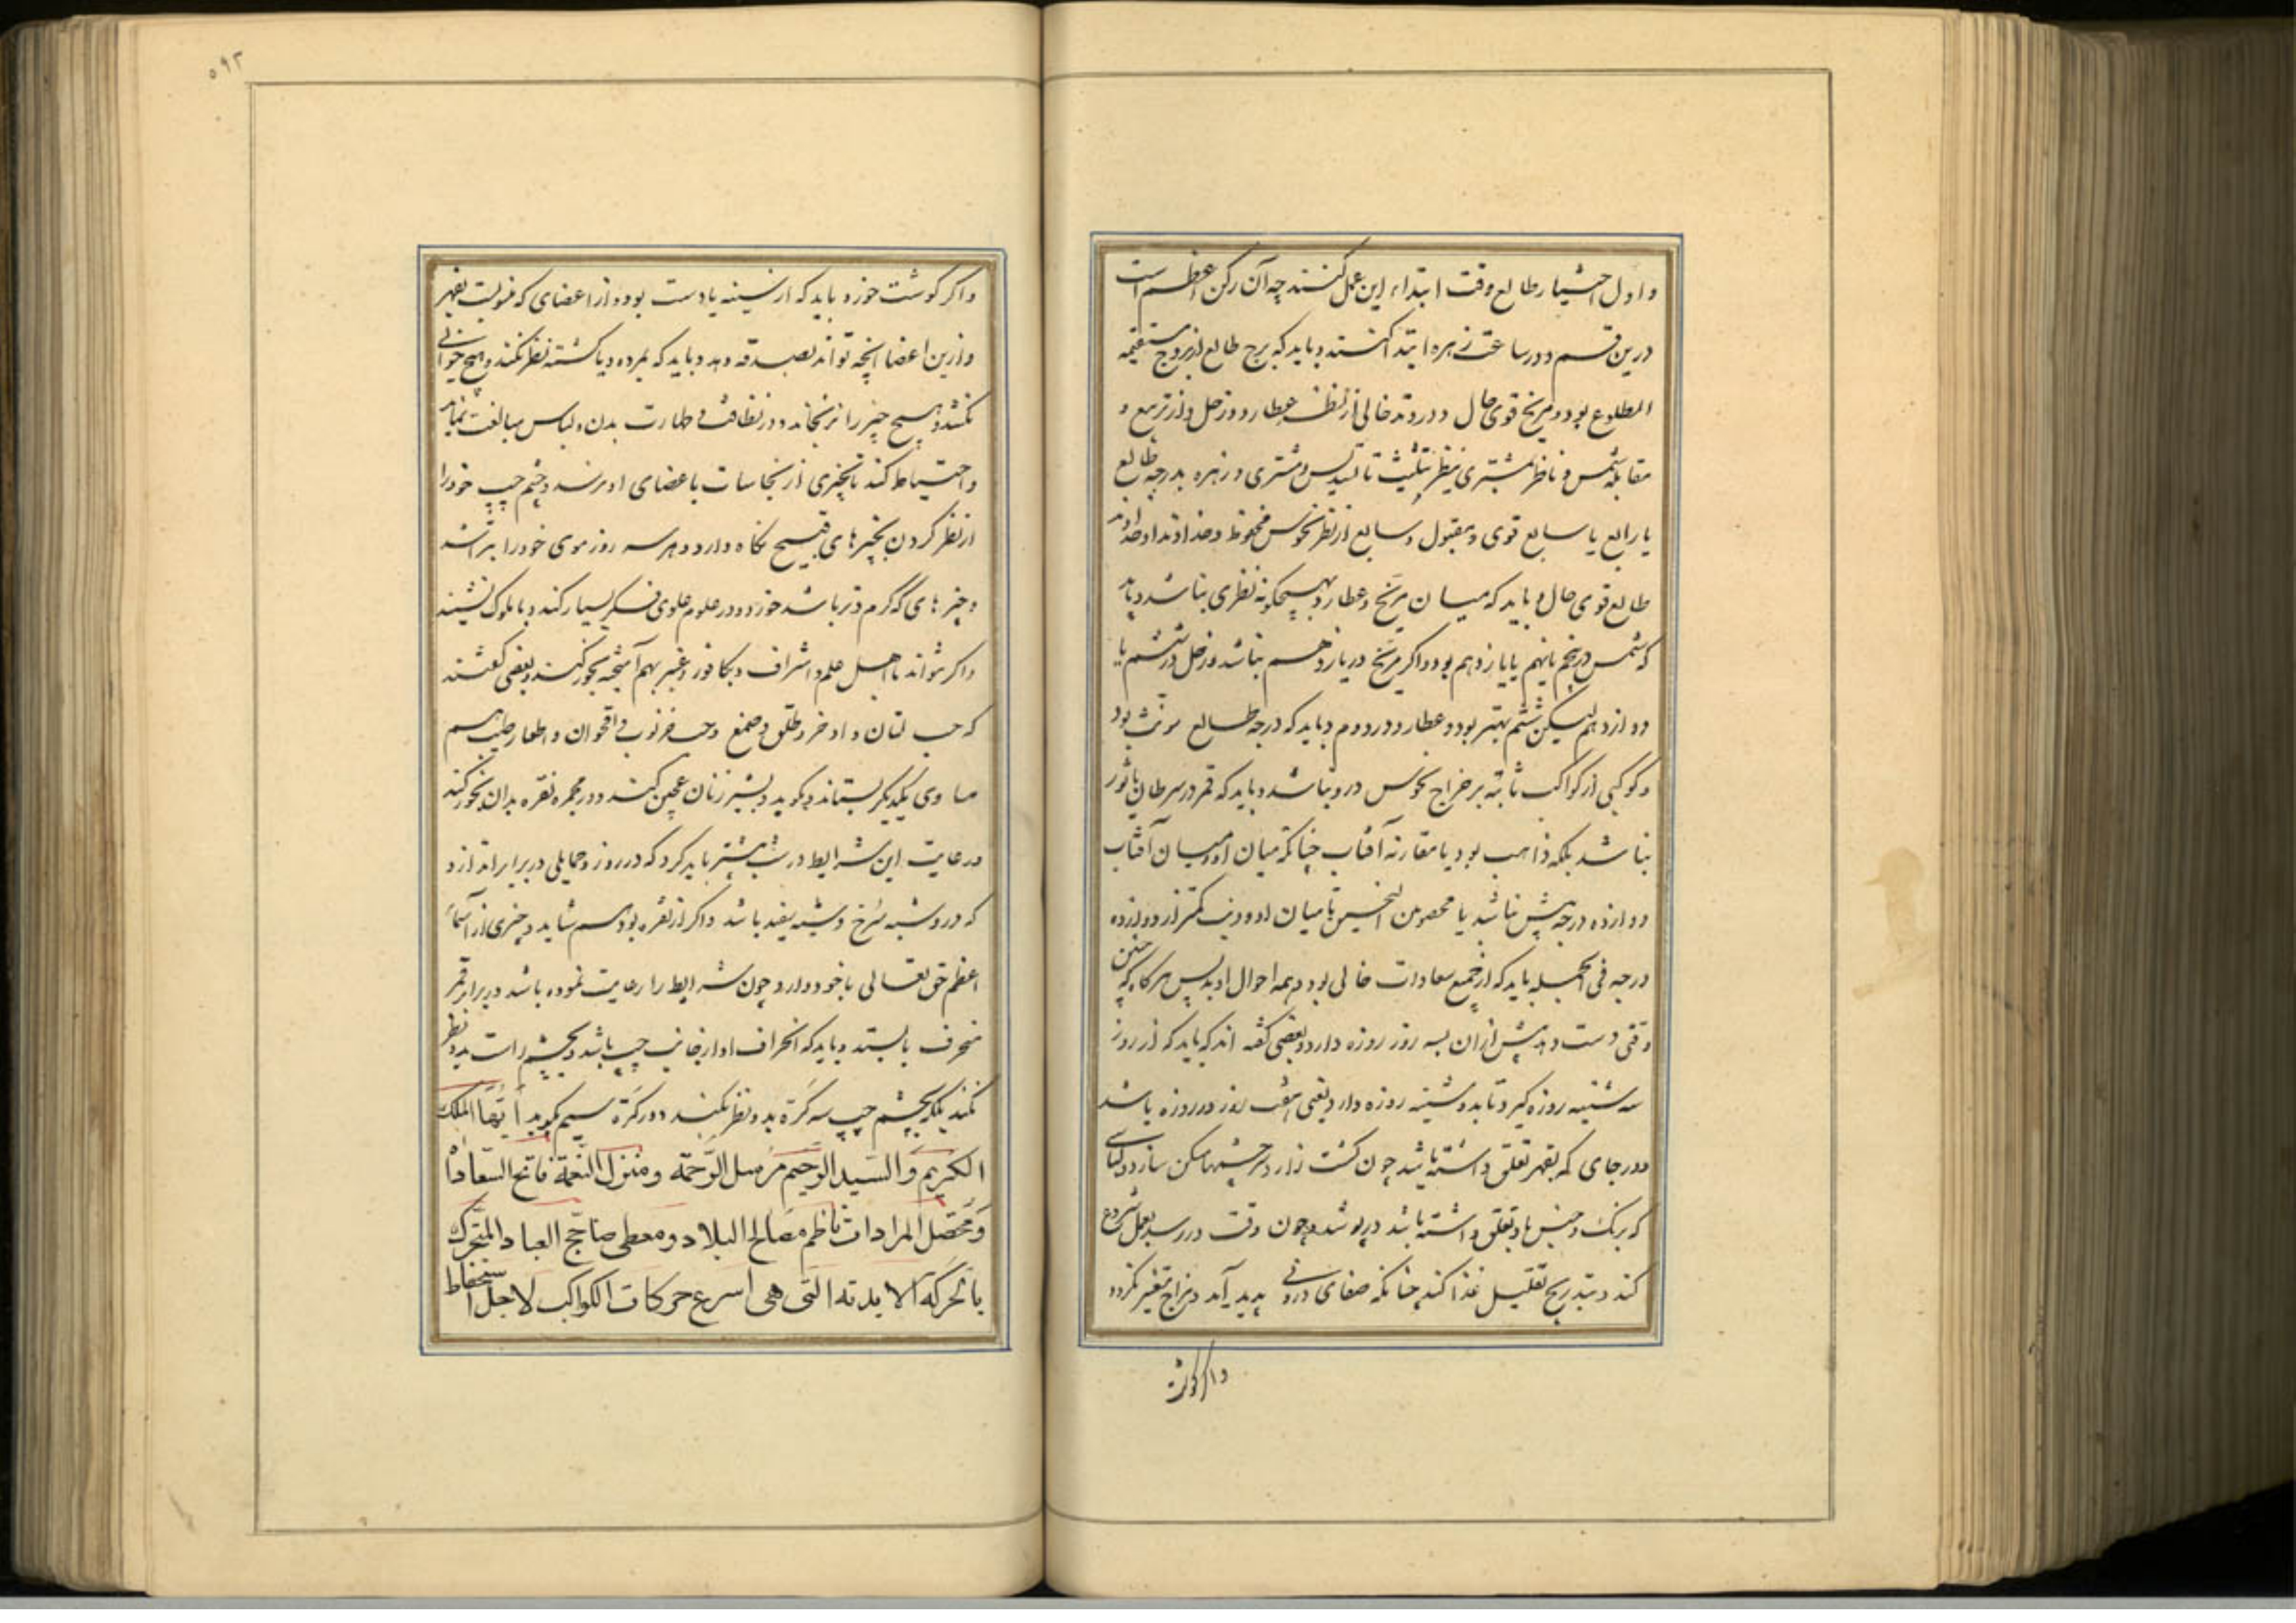 و اول اختیار طالع وقت ابتداء این عمل کنند چه آن رکن اعظم است
درین قسم و در ساعت زهره ابتدا کنند و باید که برج طالع از بروج مستقیمه
الطلوع بود و مریخ قوی حال و در وتد خالی از نظر عطارد و زحل و از تربیع و
مقابله شمس و ناظر بمشتری بنظر تثلیث تا تسدیس و مشتری و زهره بدرجه طالع
یا رابع یا سابع قوی و مقبول و سابع از نظر نحوس محفوظ و خداوند او و خداوند
طالع قوی حال و باید که میان مریخ و عطارد بهیچگونه نظری نباشد و باید
که شمس در پنجم یا نهم یا یازدهم بود و اگر مریخ در یازدهم نباشد و زحل در ششم یا
دوازدهم لیکن ششم بهتر بود و عطارد در دوم و باید که درجه طالع مونث بود
و کوکبی از کواکب ثابته بر مزاج نحوس درو نباشد و باید که قمر در سرطان یا ثور
نباشد بلکه ذاهب بود یا مقارنه آفتاب چنانکه میان او و میان آفتاب
دوازده درجه بیش نباشد یا محصور بین النحسین تا میان او و ذنب کمتر از دوازده
درجه فی الجمله باید که از جمیع سعادات خالی بود و همه احوال او بد پس هرگاه که چنین
وقتی دست دهد پیش ازان بسه روز روزه دارد و بعضی گفته اند که باید که از روز
سه شنبه روزه گیرد تا بدوشنبه روزه دارد یعنی هفت روز در روزه باشد
و در جای که بقمر تعلق داشته باشد چون کشت زار و سرچشمها مسکن سازد و لباسی
که برنگ و جنس باو تعلق داشته باشد درپوشد و چون وقت در رسد بعمل شروع
کند و بتدریج تقلیل غذا کند چنانکه صفای درونی پدید آید و مزاج متغیر نگردد
و اگر گوشت
۵۹۲
و اگر گوشت خورد باید که از سینه یا دست بود و از اعضای که منسوبست بقمر
و ازین اعضا آنچه تواند بصدقه دهد و باید که بمرده و یا کشته نظر نکند و هیچ حیوانی
نکشد و هیچ چیز را نرنجاند و در نظافت و طهارت بدن و لباس مبالغت نماید
و احتیاط کند تا چیزی از نجاسات باعضای او نرسد و چشم چپ خود را
از نظر کردن بچیزهای قبیح نگاه دارد و هر سه روز موی خود را بتراشد
و چیزهای که گرم و تر باشد خورد و در علوم علوی فکر بسیار کند و با ملوک نشیند
و اگر نتواند با اهل علم و اشراف و بکافور و عنبر بهم آمیخته بخور کند و بعضی گفتند
که حب لبان و اذخر و طلق و صمغ و حب خرنوب و اقحوان و اظفار طیب هم
مساوی یکدیگر بستاند و بکوبد و بشیر زنان عجین کند و در مجمره نقره بدان بخور کند
و رعایت این شرایط در شب بیشتر باید کرد که در روز و حمایلی در بر اندازد
که درو شبه سرخ و شیشه سفید باشد و اگر از نقره بود هم شاید و چیزی از اسماء
اعظم حق تعالی با خود دارد و چون شرایط را رعایت نموده باشد در برابر قمر
منحرف بایستد و باید که انحراف او از جانب چپ باشد و بچشم راست بدو نظر
نکند بلکه بچشم چپ سه کرة بدو نظر نکند و در کرة سیم بگوید أیّها الملک
الکریم و السیّد الرحیم مرسل الرّحمة و منزل النعمة فاتح السّعادات
و محصّل المرادات ناظم مصالح البلاد و معطی مناجح العباد المتحرک
بالحرکة الابدیّة الّتی هی اسرع حرکات الکواکب لاجل استحفاظ